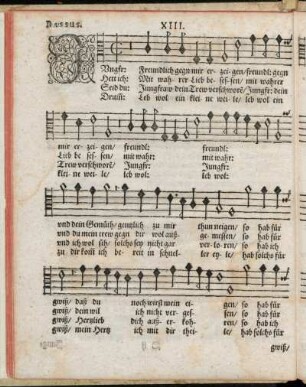 BASSUS.
XIII.
Jungfr: Freundlich gegn mir er- zei- gen/ freundl: gegn
Hett ich: Mit wah- rer Lieb be- ses- sen/ mit wahrer
Seid du: Jungfraw dein Trew verschworē/ Jungfr: dein
Drumb: Leb wol ein klei ne wi- le/ leb wol ein
mir er- zei- gen/ freundl: freundl:
Lieb be ses- sen/ mit wahr: mit wahr:
Trew verschworē/ Jungfr: Jungfr:
klei ne wei- le/ leb wol: leb wol:
vnd dein Gemüth/ gentzlich zu mir thun neigen/ so hab für
vnd du mein trew gegn dir wol auß- ge- messen/ so hab für
vnd ich wol sih/ solchs sey nicht gar ver- lo- ren/ so hab ich
zu dir komm ich be- ren in schnel- ler ey- le/ hab solchs für
gwiß/ daß du noch wirst mein ei- gen/ so hab für
gwiß/ dein wil ich nicht ver- ges- sen/ so hab für
gwiß/ Hertzlieb dich auß- er- koh- ren/ so hab ich
gwiß/ mein Hertz ich mit dir thei- le/ hab solchs für
gwiß/